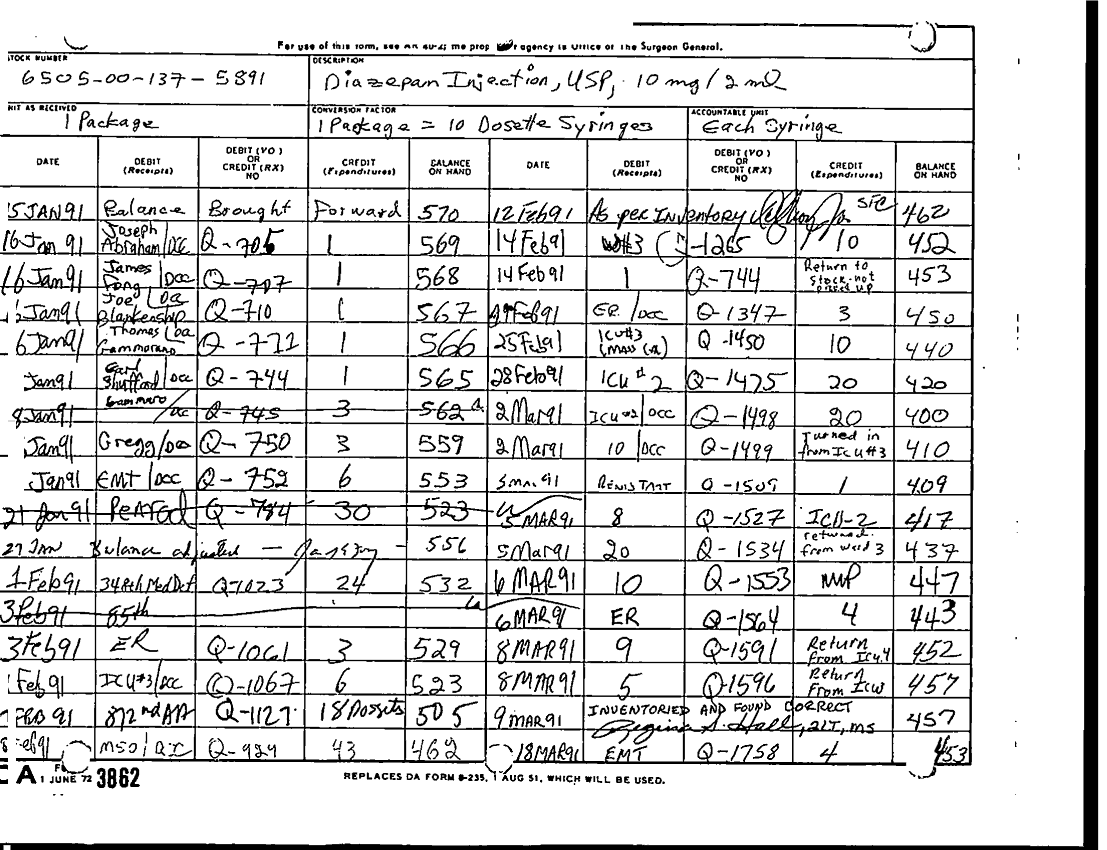 For use of this form, see AR 40-2; the prop agency is Office of The Surgeon General.
STOCK NUMBER
6505-00-137-5891
DESCRIPTION
Diazepam Injection, USP, 10 mg/2 ml
UNIT AS RECEIVED
1 Package
CONVERSION FACTOR
1 Package = 10 Dosette Syringes
ACCOUNTABLE UNIT
Each Syringe
DATE DEBIT (Receipts) DEBIT (VO) OR CREDIT (RX) NO CREDIT (Expenditures) BALANCE ON HAND DATE DEBIT (Receipts) DEBIT (VO) OR CREDIT (RX) NO CREDIT (Expenditures) BALANCE ON HAND
15 JAN 91 Balance Brought Forward 570
16 Jan 91 Joseph Abraham/DCC Q-705 1 569
16 Jan 91 James Fong/DCC Q-707 1 568
Jan 91 Joe Blankenship Q-710 1 567
6 Jan 91 Thomas Gammorano Q-771 1 566
Jan 91 Shufford/DCC Q-744 1 565
8 Jan 91 Q-745 3 562
Jan 91 Gregg/DCC Q-750 3 559
Jan 91 EMT/DCC Q-752 6 553
21 Jan 91 Q-784 30 523
27 JAN Balance adjusted 556
1 Feb 91 34th Med Det Q-1023 24 532
3 Feb 91 85th
3 Feb 91 ER Q-1061 3 529
Feb 91 ICU#3/DCC Q-1067 6 523
FEB 91 872nd AA Q-1127 18 Dossets 505
8 Feb 91 MSO/ Q-989 43 462
12 Feb 91 As per Inventory SFC 462
14 Feb 91 W#3 -1265 10 452
14 Feb 91 1 Q-744 Return to stock-not picked up 453
Feb 91 ER/DCC Q-1347 3 450
25 Feb 91 ICU#3 Q-1450 10 440
28 Feb 91 ICU #2 Q-1475 20 420
2 Mar 91 ICU#2/DCC Q-1498 20 400
2 Mar 91 10/DCC Q-1499 Turned in from ICU#3 410
5 Mar 91 Q-1509 1 409
5 MAR 91 8 Q-1527 ICU-2 417
5 Mar 91 20 Q-1534 returned from ward 3 437
6 MAR 91 10 Q-1553 MWP 447
6 MAR 91 ER Q-1564 4 443
8 MAR 91 9 Q-1591 Return From ICU4 452
8 MAR 91 5 Q-1596 Return From ICW 457
9 MAR 91 INVENTORIED AND FOUND CORRECT Regina S. Hall, 2LT, MS 457
18 MAR 91 EMT Q-1758 4 453
A 1 JUNE 72 3862
REPLACES DA FORM 8-235, 1 AUG 51, WHICH WILL BE USED.